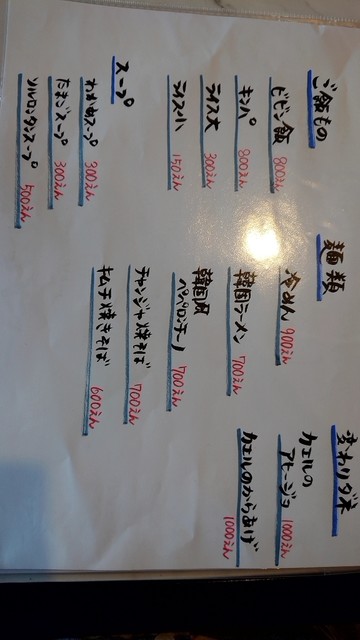 ご飯もの
ビビン飯 800えん
キンパ 800えん
ライス大 300えん
ライス小 150えん
スープ
わかめスープ 300えん
たまごスープ 300えん
ソルロンタンスープ 500えん
麺類
冷めん 900えん
韓国ラーメン 700えん
韓国風
ペペロンチーノ 700えん
チャンジャ焼そば 700えん
キムチ焼きそば 600えん
変わりダネ
カエルの
アヒージョ 1000えん
カエルのからあげ 1000えん